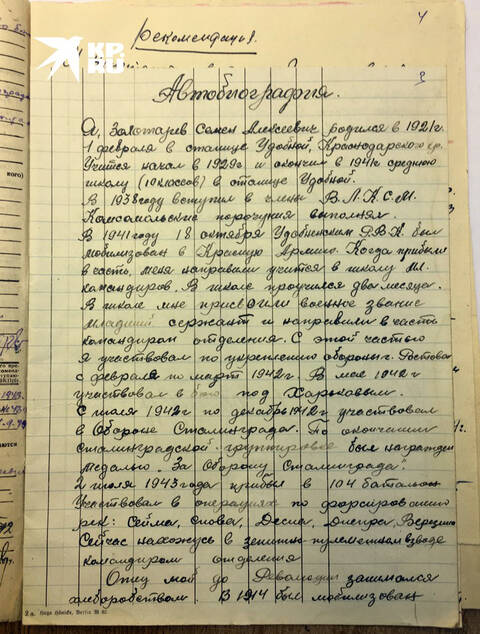 KP.RU
Рекомендация.
4
3
Автобиография.
Я, Золотарев Семен Алексеевич родился в 1921г.
1 февраля в станице Удобной, Краснодарского кр.
Учится начал в 1929г. и окончил в 1941г. среднюю
школу (10 классов) в станице Удобной.
В 1938 году вступил в члены В.Л.К.С.М.
Комсомольские поручения выполнял.
В 1941 году 18 октября Удобненским Р.В.К. был
мобилизован в Красную Армию. Когда прибыли
в часть, меня направили учится в школу мл.
командиров. В школе проучился два месяца.
В школе мне присвоили военное звание
младший сержант и направили в часть
командиром отделения. С этой частью
я участвовал по укреплению обороны г. Ростова
с февраля по март 1942г. В мае 1942г
участвовал в бою под Харьковым.
С июля 1942г по декабрь 1942г участвовал
в Обороне Сталинграда. По окончании
Сталинградской группировке был награжден
медалью „За Оборону Сталинграда".
2 июля 1943 года прибыл в 104 баталион
Участвовал в операциях по форсированию
рек: Сейма, Снова, Десна, Днепра, Березино
Сейчас нахожусь в зенитно пулеметном взводе
командиром отделения
Отец мой до Революции занимался
хлеборобством. В 1914 был мобилизован